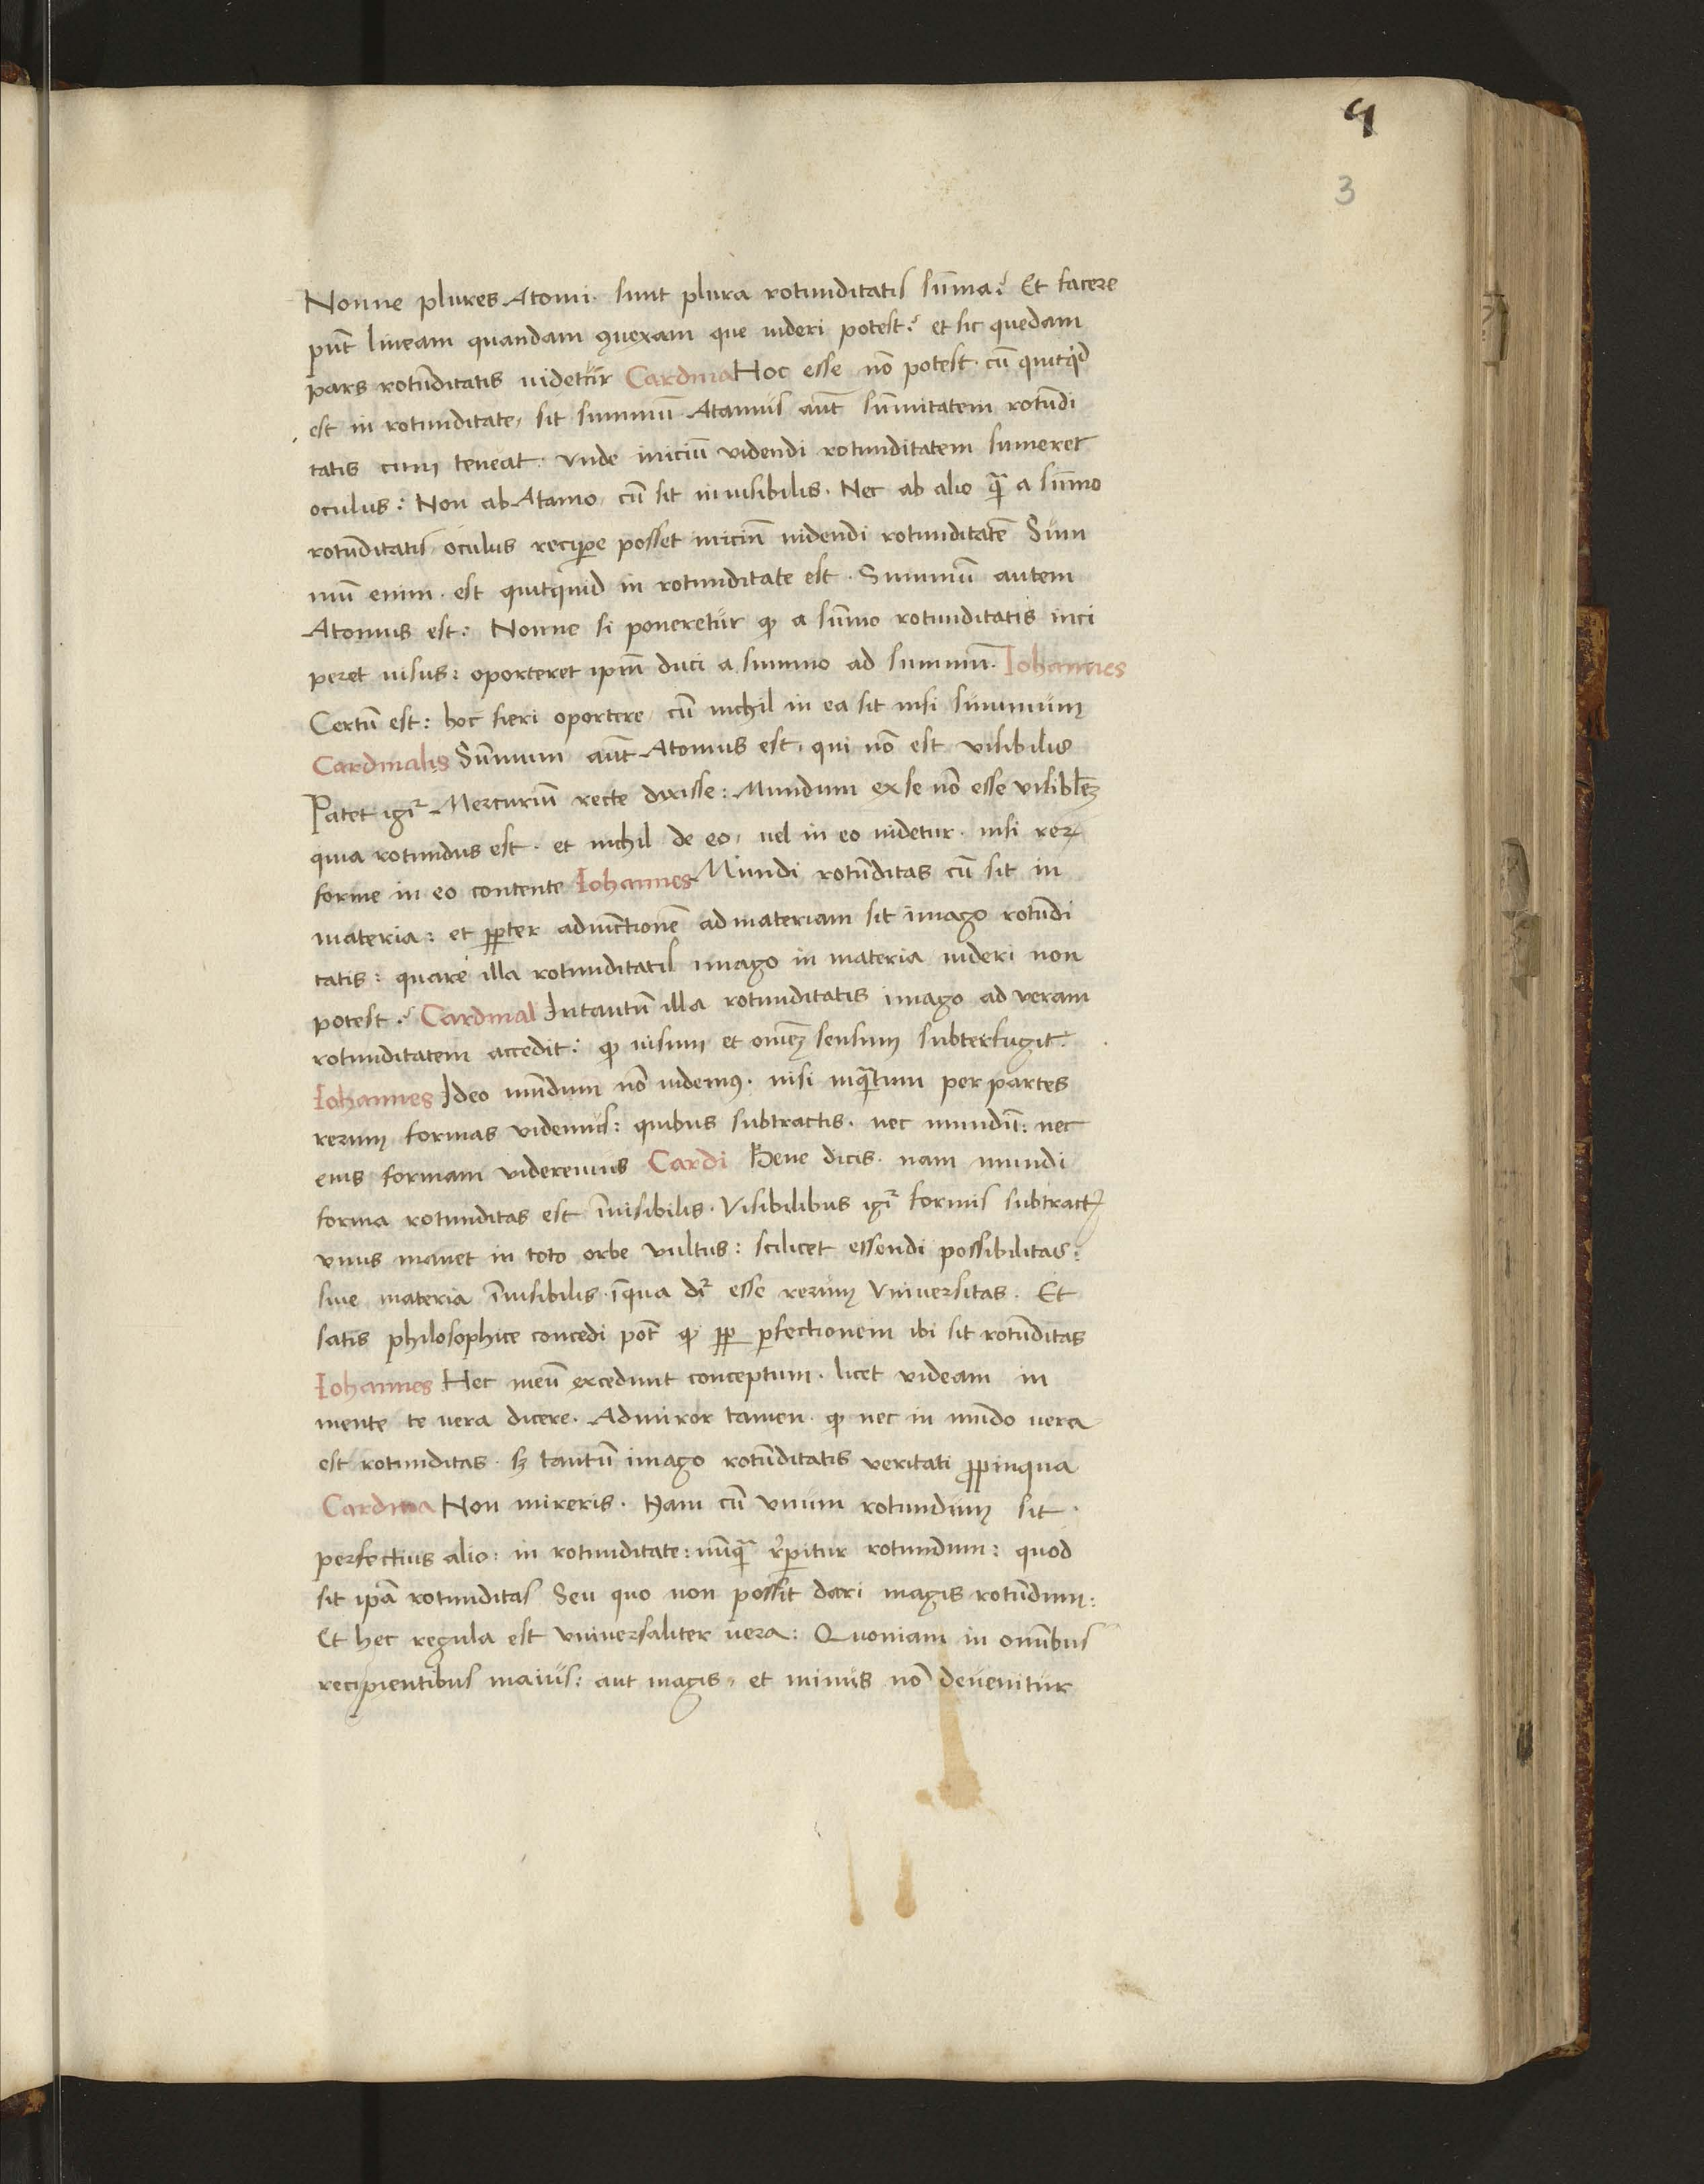 4
3
Nonne plures Atomi. sunt plura rotunditatis sūma? Et facere
pn̄t lineam quandam ꝯuexam que uideri potest? et sic quedam
pars rotūditatis uidetur Cardina Hoc esse nō potest. cū quitqͥd
est in rotunditate, sit summū. Atamus aūt sūmitatem rotūdi
tatis cum teneat. vnde iniciū videndi rotunditatem sumeret
oculus: Non ab Atamo, cū sit inuisibilis. Nec ab alio qᷓ a sūmo
rotūditatis oculus recipe posset iniciū uidendi rotunditatē Sum
mū enim. est quitquid in rotunditate est. Summū autem
Atomus est: Nonne si poneretur ꝙ a sūmo rotunditatis inci
peret uisus: oporteret ipm̄ duci a summo ad summū. Iohannes
Certū est: hoc fieri oportere, cū nichil in ea sit nisi summum
Cardinalis Sūmum aūt Atomus est, qui nō est visibilis
Patet igr̄ Mercuriū recte dixisse: Mundum ex se nō esse visiblēꝫ
quia rotundus est. et nichil de eo, uel in eo uidetur. nisi reꝝ
forme in eo contente Iohannes Mundi rotūditas cū sit in
materia: et ꝓpter adiūctionē ad materiam sit imago rotūdi
tatis: quare illa rotunditatis imago in materia uideri non
potest? Cardinal Intantū illa rotunditatis imago ad veram
rotunditatem accedit: ꝙ uisum et omēꝫ sensum subterfugit.
Iohannes Ideo mūdum nō uidemꝰ. nisi inqᷓtum per partes
rerum formas videmus: quibus subtractis. nec mundū: nec
eius formam videremus Cardi Bene dicis. nam mundi
forma rotunditas est īuisibilis. Visibilibus igr̄ formis subtractꝭ
vnus manet in toto orbe vultus: scilicet essendi possibilitas:
siue materia īuisibilis. īqua dr̄ esse rerum Vniuersitas. Et
satis philosophice concedi pōt ꝙ ꝓp ꝑfectionem ibi sit rotūditas
Iohannes Hec meū excedunt conceptum. licet videam in
mente te vera dicere. Admiror tamen. ꝙ nec in mūdo uera
est rotunditas. sꝫ tantū imago rotūditatis veritati ꝓpinqua
Cardina Non mireris. Nam cū vnum rotundum sit.
perfectius alio: in rotunditate: nūqᷓ r̄pitur rotundum: quod
sit ipā rotunditas Seu quo non possit dari magis rotūdum:
Et hec regula est vniuersaliter uera: Quoniam in omībus
recipientibus maius: aut magis, et minus nō deuenitur